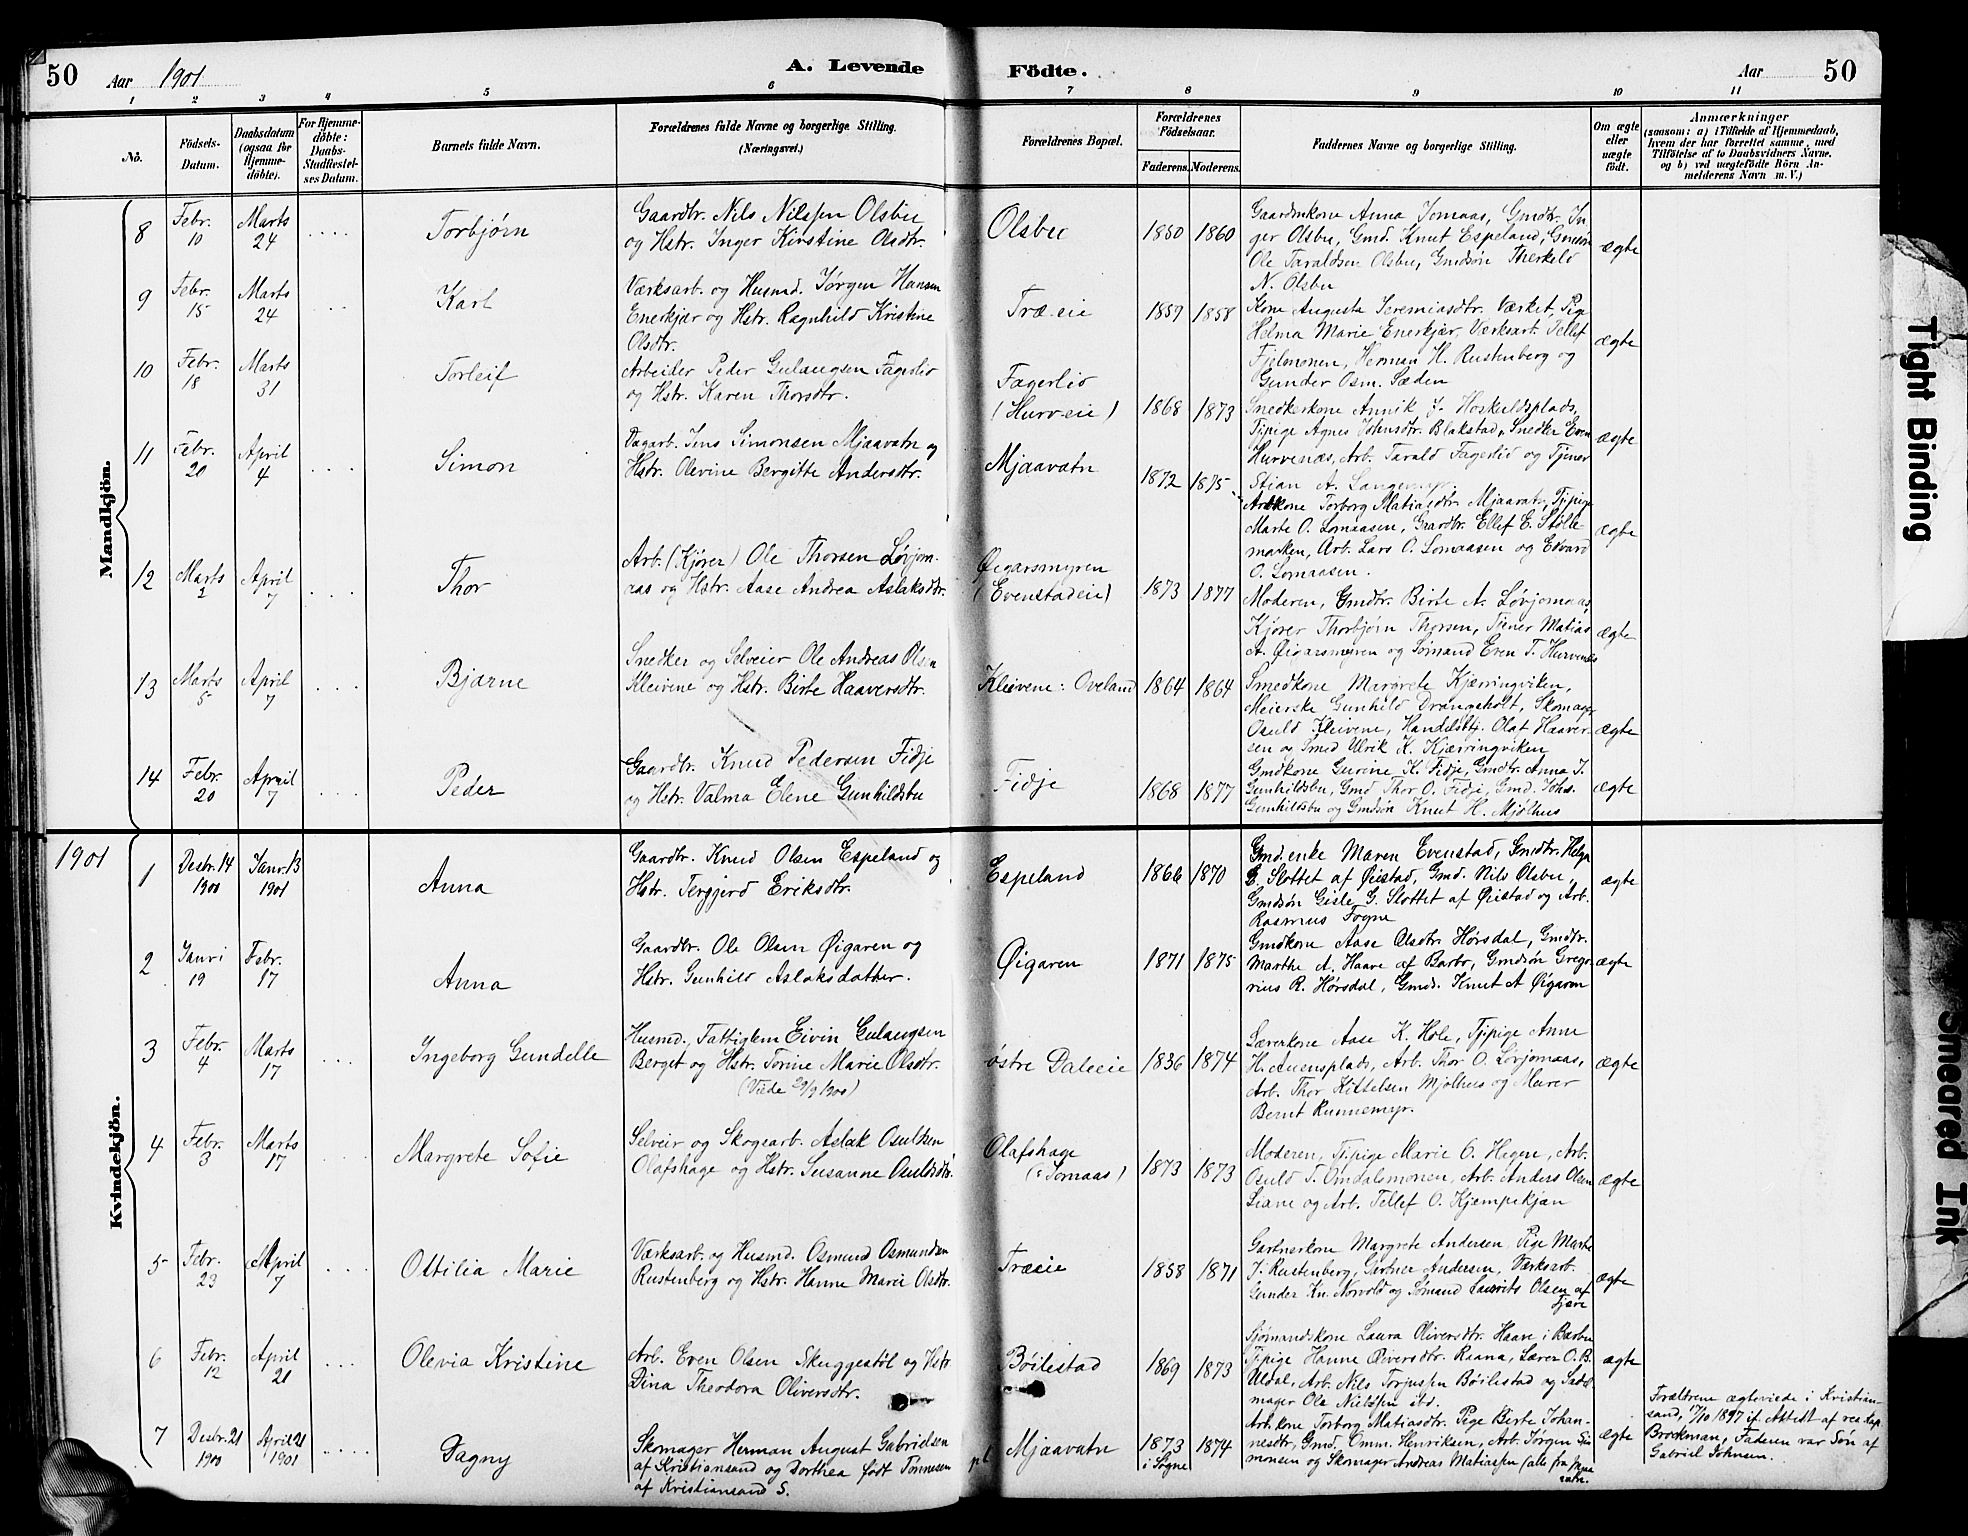 50 Aar 1901 A. Levende Födte. Aar 50
1 2 3 4 5 6 7 8 9 10 11
No.
Födsels-
Datum.
Daabsdatum
(ogsaa for
Hjemme-
döbte).
For Hjemme-
döbte:
Daabs-
Stadfæstel-
ses Datum.
Barnets fulde Navn.
Forældrenes fulde Navne og borgerlige Stilling.
(Næringsvei.)
Forældrenes Bopæl.
Forældrenes
Födselsaar.
Faderens. Moderens.
Faddernes Navne og borgerlige Stilling.
Om ægte
eller
uægte
födt.
Anmærkninger
(saasom: a) i Tilfælde af Hjemmedaab,
hvem der har forrettet samme, med
Tilföielse af to Daabsvidners Navne,
og b) ved uegtefödte Börn An-
melderens Navn m. V.)
Mandkjön.
8 Febr. 10 Marts 24 Torbjørn
Gaardbr. Nils Nilssen Olsbu
og Hstr. Inger Kirstine Olsdtr.
Olsbu 1850 1860
Gaardmkone Anna Jomaas, Gmdtr. In-
ger Olsbu, Gmd. Knut Espeland, Gmdsøn
Ole Taraldsen Olsbu, Gmdsön Therkild
N. Olsbu
ægte
9 Febr. 15 Marts 24 Karl
Værksarb. og Husmd. Jørgen Hansen
Enerkjær og Hstr. Ragnhild Kristine
Olsdtr.
Træeie 1859 1858
Kone Augusta Jeremiasdtr. Værket, Pige
Helma Marie Enerkjær, Værksarb. Tellef
Fjelmonen, Herman H. Rustenberg og
Gunder Osm. Sæden
ægte
10 Febr. 18 Marts 31 Torleif
Arbeider Peder Gulaugsen Fagerlid
og Hstr. Karen Thorsdtr.
Fagerlid
(Hurveie) 1868 1873
Snedkerkone Annik J. Hoskuldsplads,
Tjpige Agnes Johnsdtr. Blakstad, Snedker Even
Hurvenæs, Arb. Tarald Fagerlid og Tjener
Stian A. Langemyr.
ægte
11 Febr. 20 April 4 Simon
Dagarb. Jens Simonsen Mjaavatn og
Hstr. Olevine Bergitte Andersdtr.
Mjaavatn 1872 1875
Arbkone Torborg Matiasdtr. Mjaavatn, Tjpige
Marte O. Lomaasen, Gaardbr. Ellef E. Stølle-
marken, Arb. Lars O. Lomaasen og Edvard
O. Lomaasen.
ægte
12 Marts 2 April 7 Thor
Arb. (Kjører) Ole Thorsen Løvjom-
aas og Hstr. Aase Andrea Aslaksdtr.
Øigarsmyren
(Evenstadeie) 1873 1877
Moderen, Gmdtr. Birte A. Løvjomaas,
Kjører Thorbjørn Thorsen, Tjener Matias
A. Øigarsmyren og Sømand Even T. Hurvenes
ægte
13 Marts 5 April 7 Bjarne
Snedker og Selveier Ole Andreas Olsen
Kleivene og Hstr. Birte Haaversdtr.
Kleivene: Oveland 1864 1864
Smedkone Margrete Kjærringviken,
Meierske Gunhild Drangsholt, Skomager
Osuld Kleivene, Handelsbtj. Olaf Haaver-
sen og Smed Ulrik K. Kjærringviken
ægte
14 Febr. 20 April 7 Peder
Gaardbr. Knud Pedersen Fidje
og Hstr. Valma Elene Gunhildsbu
Fidje 1868 1877
Gmdkone Gurine K. Fidje, Gmdtr. Anna J.
Gunhildsbu, Gmd Thor O. Fidje, Gmd. Johs.
Gunhildsbu og Gmdsøn Knut H. Mjølhus
ægte
1901
Kvindekjön.
1 Desbr. 14 1900 Janr. 13 1901 Anna
Gaardbr. Knud Olsen Espeland og
Hstr. Tergjerd Eriksdtr.
Espeland 1866 1870
Gmd.enke Maren Evenstad, Gmdtr. Helga
G. Slottet af Øiestad, Gmd. Nils Olsbu,
Gmdsön Gisle G. Slottet af Øiestad og Arb.
Rasmus Fogne
ægte
2 Janri 19 Febr. 17 Anna
Gaardbr. Ole Olsen Øigaren og
Hstr. Gunhild Aslaksdatter.
Øigaren 1871 1875
Gmdkone Aase Olsdtr. Hørsdal, Gmdtr.
Marthe A. Haave af Barbo, Gmdsön Grego-
rius R. Hørsdal, Gmd. Knut A Øigaren
ægte
3 Febr. 4 Marts 17 Ingeborg Gundelle
Husmd., Fattiglem Eivin Gulaugsen
Berget og Hstr. Torine Marie Olsdtr.
(Viede 29/9 1900)
østre Daleeie 1836 1874
Lærerkone Aase K. Hole, Tjpige Anne
H. Auensplads, Arb. Thor O. Lovjomaas,
Arb. Thor Kittelsen Mjølhus og Murer
Bernt Runnemyr.
ægte
4 Febr. 3 Marts 17 Margrete Sofie
Selveir og Skogearb. Aslak Osuldsen
Olafshage og Hstr. Susanne Osuldsdtr.
Olafshage
(: Jomaas) 1873 1873
Moderen, Tjpige Marie O. Hegen, Arb.
Osuld T. Omdalsmonen, Arb. Anders Olsen
Leane og Arb. Tellef O. Kjempekjæn
ægte
5 Febr. 23 April 7 Ottilia Marie
Værksarb. og Husmd. Osmund Osmundsen
Rustenberg og Hstr. Hanne Marie Olsdtr.
Træeie 1858 1871
Gartnerkone Margrete Andersen, Pige Marthe
J. Rustenberg, Gartner Andersen, Værksarb.
Gunder Kn. Norvold og Sømand Lauvits Olsen af
Fjære
ægte
6 Febr. 12 April 21 Olevia Kristine
Arb. Even Olsen Skuggestöl og Hstr.
Dina Theodora Oliversdtr.
Böilestad 1869 1873
Sjømandskone Laura Oliversdtr. Haave i Barbu
Tjpige Hanne Oliversdtr. Raana, Lærer O. B.
Uldal, Arb. Nils Torjussen Böilestad og Sadel-
mager Ole Nielssen ibd.
ægte
7 Desbr. 21 1900 April 21 1901 Dagny
Skomager Herman August Gabrielsen
af Kristiansand og Dorthea født Tønnesen
af Kristiansand S.
pt Mjaavatn 1873
i Søgne 1874
Arb.kone Torborg Matiasdtr. Pige Birte Johan-
nesdtr., Gmd. Omm. Henriksen, Arb. Jørgen Si-
monsen og Skomager Andreas Matiassen (alle fra Mjaa-
vatn.
ægte
Forældrene ægteviede i Kristian-
sand, 17/10 1897 if. Attest af res. kap.
Brockman, Faderen var Søn af
Gabriel Johnsen.
Tight Binding
Smeared Ink